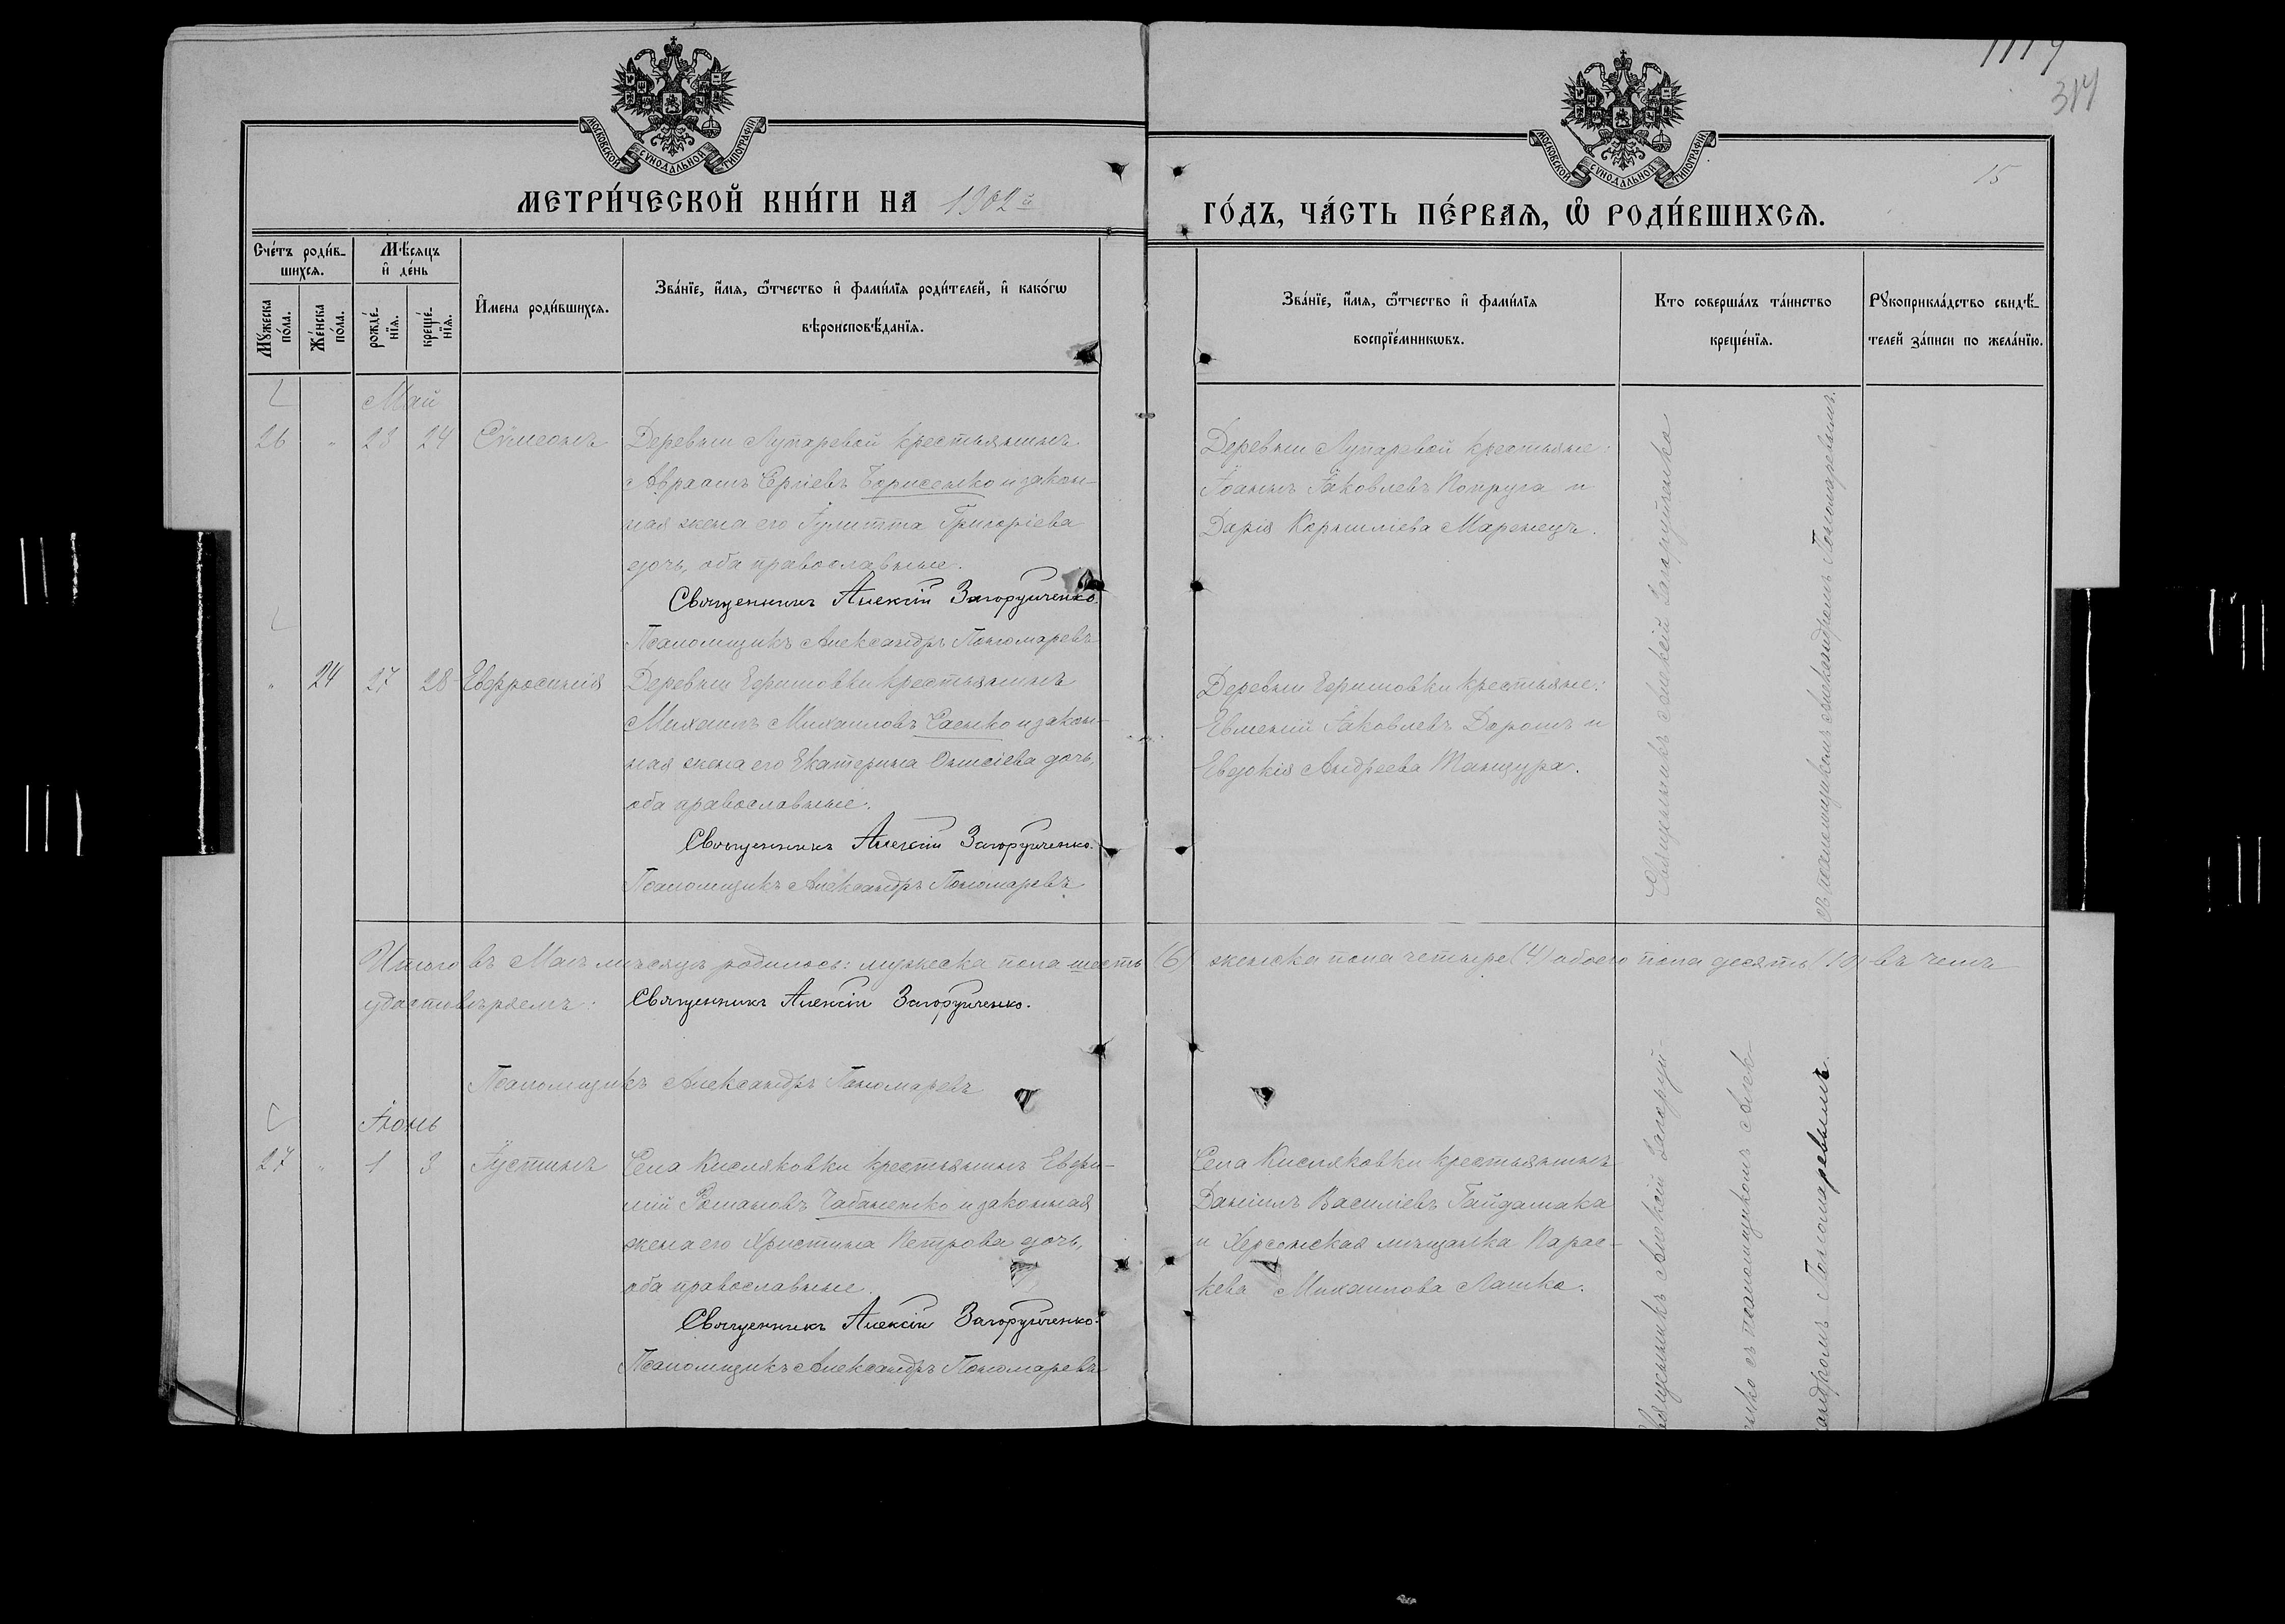 314
15
МОСКОВСКОЙ СУНОДАЛЬНОЙ ТИПОГРАФІИ
МОСКОВСКОЙ СУНОДАЛЬНОЙ ТИПОГРАФІИ
МЕТРИ́ЧЕСКОЙ КНИ́ГИ НА 1902й
ГО́ДЪ, ЧА́СТЬ ПЕ́РВАѦ, Ѡ҆ РОДИ́ВШИХСѦ.
Сче́тъ роди́в-
шихсѧ.
Мѣ́сѧцъ
и҆ де́нь
Мꙋ́жеска
по́ла.
Же́нска
по́ла.
рожде́-
нїѧ.
креще́-
нїѧ.
И҆мена роди́вшихсѧ.
Зва́нїе, и҆́мѧ, ѻ҆́тчество и҆ фами́лїѧ роди́телей, и҆ како́гѡ
вѣроисповѣ́данїѧ.
Зва́нїе, и҆́мѧ, ѻ҆́тчество и҆ фами́лїѧ
воспрїе́мникѡвъ.
Кто соверша́лъ та́инство
креще́нїѧ.
Рꙋкоприкла́дство свидѣ́-
телей за́писи по жела́нїю.
Май
26 " 23 24 Сѵмеонъ
Деревни Лупаревой крестьянинъ
Авраамъ Сергіевъ Борисенко и закон-
ная жена его Іулитта Григоріева
дочь, оба православные.
Священникъ Алексій Загоруйченко.
Псаломщикъ Александръ Пономаревъ
Деревни Лупаревой крестьяне:
Іоаннъ Іаковлевъ Попруга и
Дарія Корниліева Маренецъ.
Священникъ Алексій Загоруйченко
съ псаломщикомъ Александромъ Пономаревымъ.
" 24 27 28 Евфросинія
Деревни Ефимовки крестьянинъ
Михаилъ Михаиловъ Саенко и закон-
ная жена его Екатерина Онисіева дочь,
оба православные.
Священникъ Алексій Загоруйченко.
Псаломщикъ Александръ Пономаревъ
Деревни Ефимовки крестьяне:
Евменій Іаковлевъ Дорошъ и
Евдокія Андреева Танцура.
Итого въ Маѣ мѣсяцѣ родилось: мужеска пола шесть (6) женска пола четыре (4) обоего пола десять (10) въ чемъ
удостовѣряемъ: Священникъ Алексій Загоруйченко.
Псаломщикъ Александръ Пономаревъ
Іюнь
27 " 1 3 Іустинъ
Села Кисляковки крестьянинъ Евфи-
мій Романовъ Чабаненко и законная
жена его Христина Петрова дочь,
оба православные.
Священникъ Алексій Загоруйченко.
Псаломщикъ Александръ Пономаревъ
Села Кисляковки крестьянинъ
Даніилъ Василіевъ Гайдамака
и Херсонская мѣщанка Парас-
кева Михаилова Лашко.
Священникъ Алексій Загоруй-
ченко съ псаломщикомъ Алек-
сандромъ Пономаревымъ.